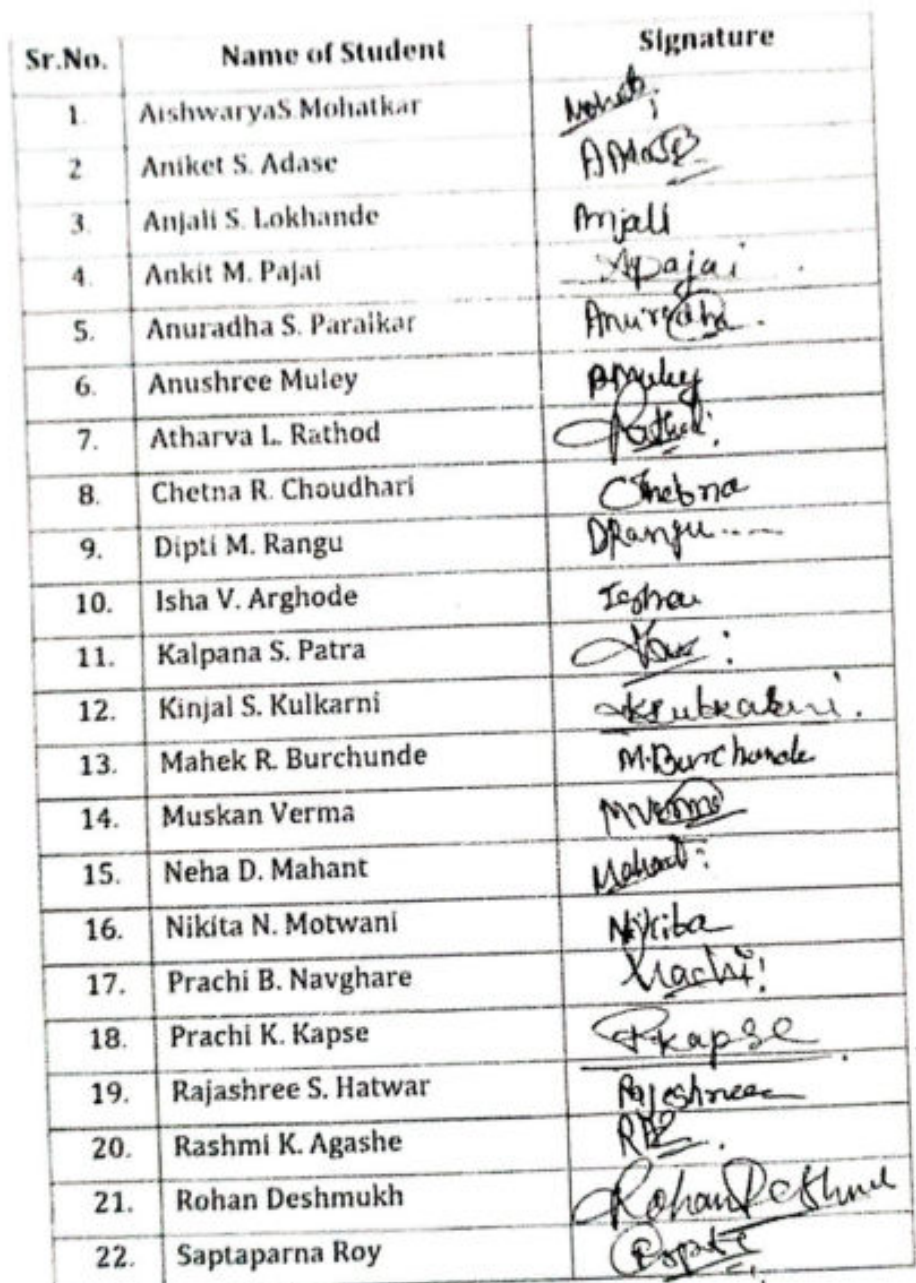 Sr.No. Name of Student Signature
1. AishwaryaS.Mohatkar
2 Aniket S. Adase AAdase
3. Anjali S. Lokhande Anjali
4. Ankit M. Pajai Apajai
5. Anuradha S. Paraikar Anuradha.
6. Anushree Muley AMuley
7. Atharva L. Rathod Rathod
8. Chetna R. Choudhari Chetna
9. Dipti M. Rangu DRangu
10. Isha V. Arghode Isha
11. Kalpana S. Patra
12. Kinjal S. Kulkarni
13. Mahek R. Burchunde M.Burchunde
14. Muskan Verma MVerma
15. Neha D. Mahant Mahant
16. Nikita N. Motwani Nikita
17. Prachi B. Navghare
18. Prachi K. Kapse Pkapse
19. Rajashree S. Hatwar Rajashree
20. Rashmi K. Agashe
21. Rohan Deshmukh Rohan
22. Saptaparna Roy